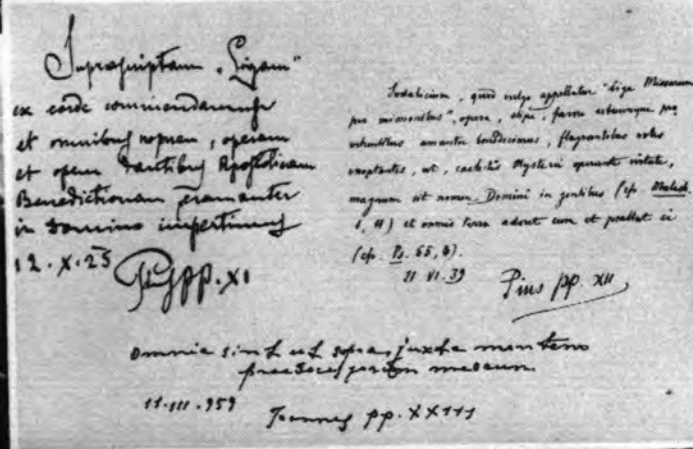 Suprascriptam „Ligam"
ex corde commendamus
et omnibus nomen, operam
et opem dantibus Apostolicam
Benedictionem peramanter
in Domino impertimus
12. X. 25
Pius pp. XI
Sodalicium, quod vulgo appellatur "Liga Missarum
pro missionibus", opera, stipe, favore
amanter benedicimus, flagrantibus votis
exoptantes, ut, caelestis Mysterii operante virtute,
magnum sit nomen Domini in gentibus (cfr. Malach.
1, 11) et omnis terra adoret eum et psallat ei
(cfr. Ps. 65, 4).
21 VI. 39
Pius pp. XII
Omnia sint ut supra juxta mentem
praedecessorum meorum
11. III. 959
Joannes pp. XXIII